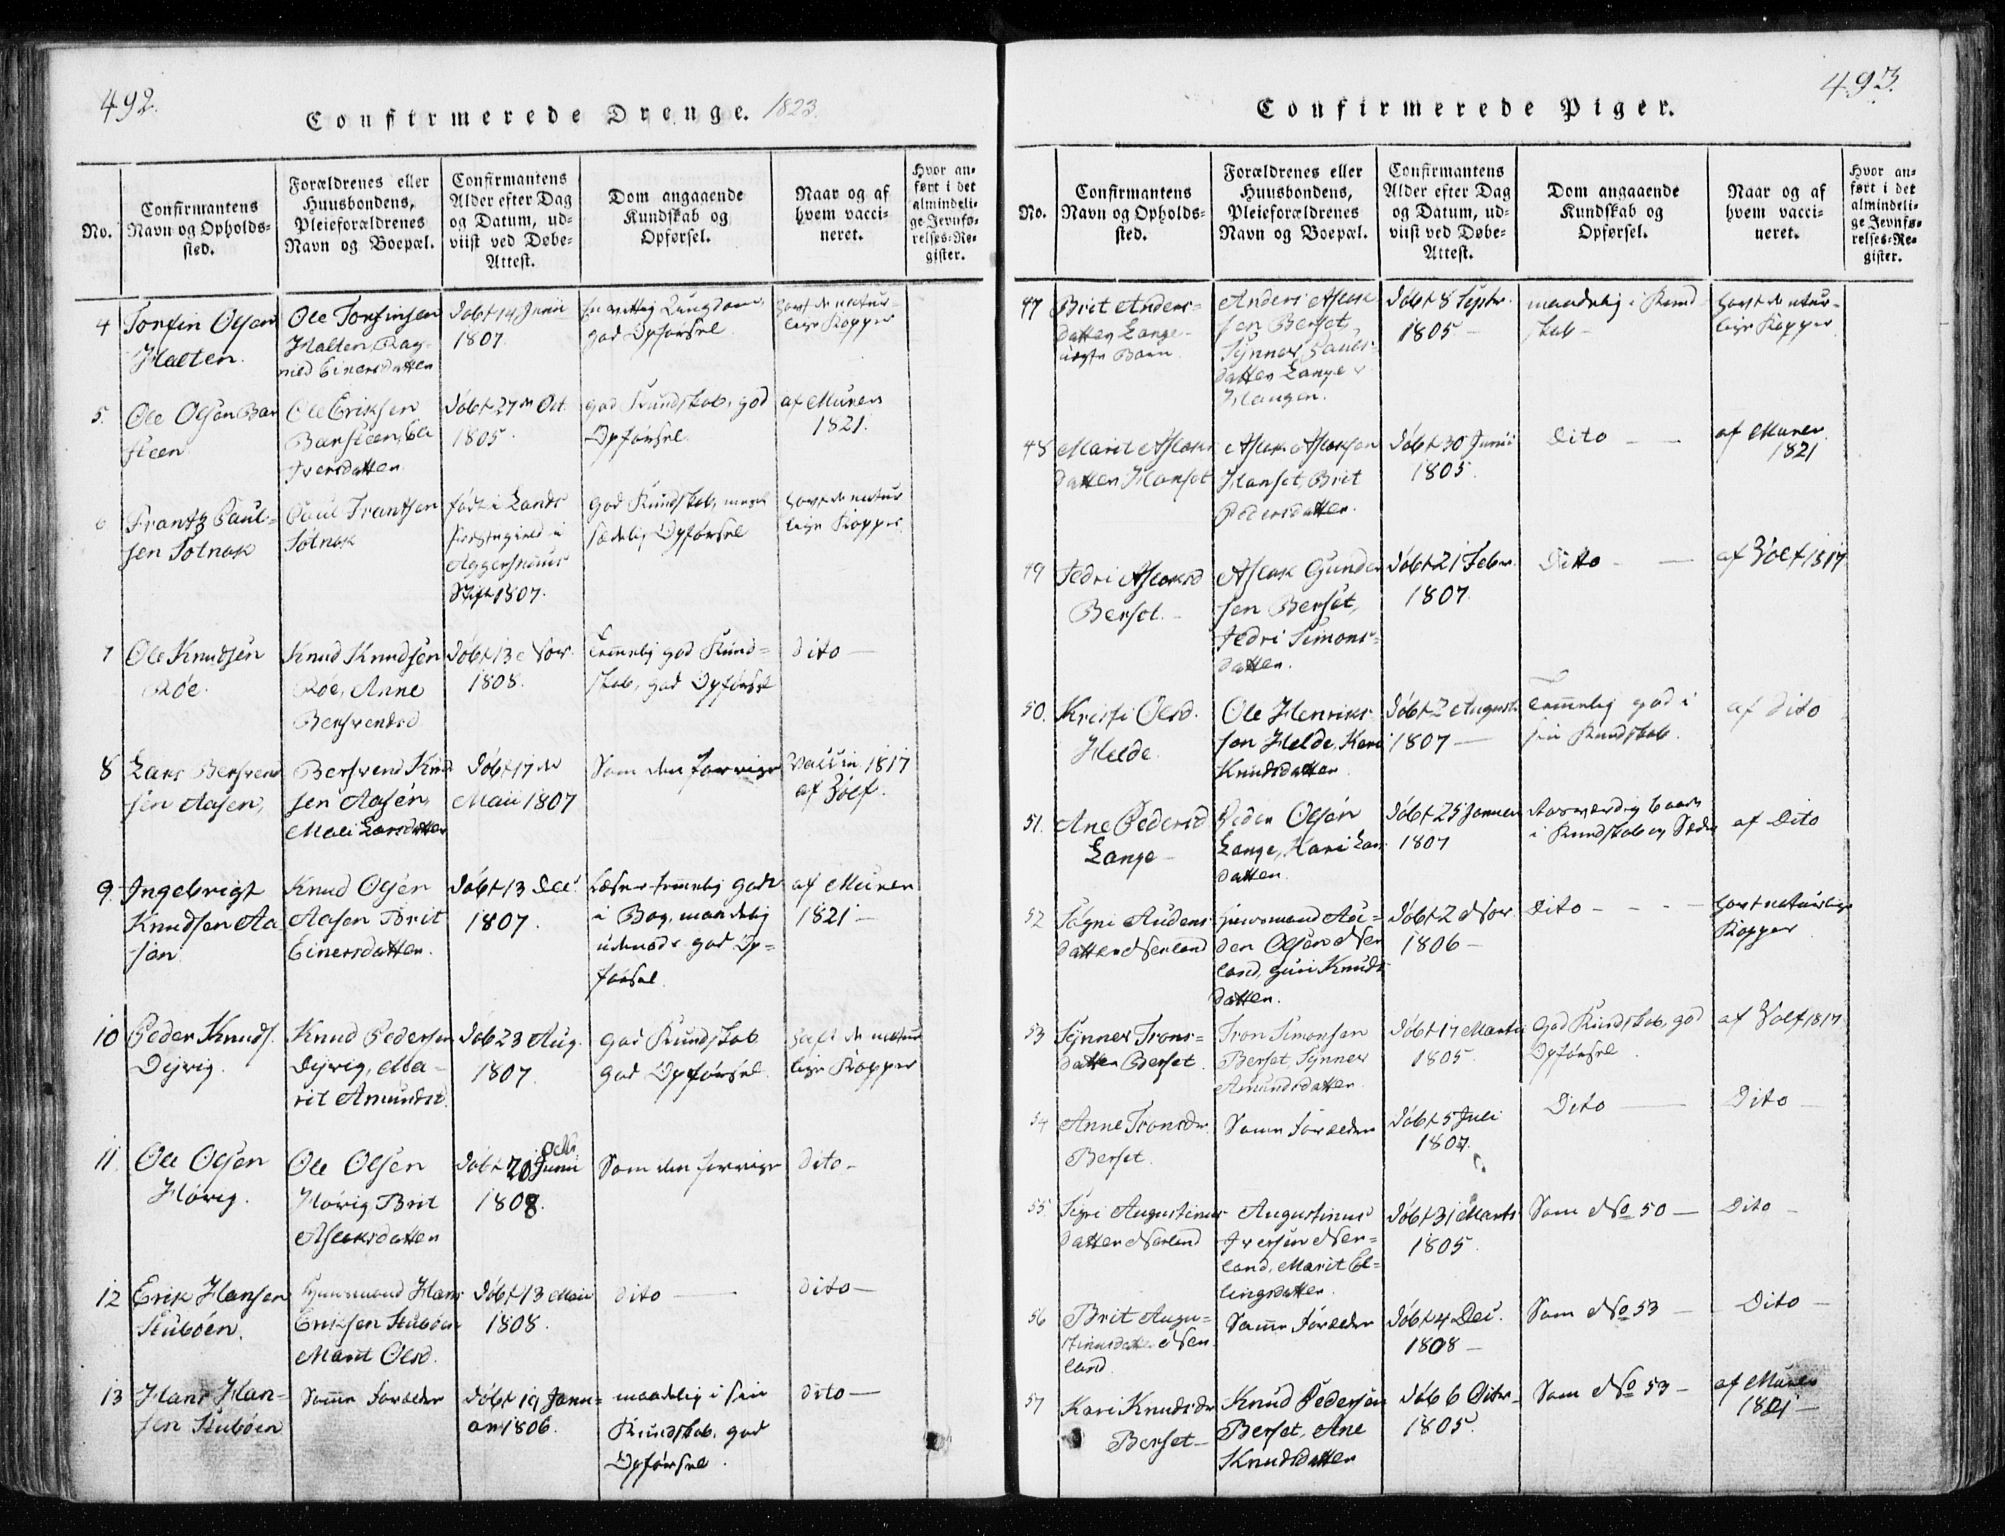 492.
Confirmerede Drenge. 1823.
No.
Confirmantens
Navn og Opholds-
sted.
Forældrenes eller
Huusbondens,
Pleieforældrenes
Navn og Boepæl.
Confirmantens
Alder efter Dag
og Datum, ud-
viist ved Døbe-
Attest.
Dom angaaende
Kundskab og
Opførsel.
Naar og af
hvem vacci-
neret.
Hvor an-
ført i det
almindeli-
ge Jevnfø-
relses-Re-
gister.
4
Torfin Olsen
Halten.
Ole Torfinsen
Halten, Rag-
nild Einersdatter
Døbt 14 Junii
1807.
god Opførsel.
havt de natur-
lige Kopper
5.
Ole Olsen Bar
steen
Ole Eriksen
Barsteen,
Iversdatter
Døbt 27de Oct.
1805.
god Kundskab, god
Opførsel.
af Muren
1821.
6
Frantz Paul-
sen Solnok
Paul Frantsen
Solnok
født i Lands
Præstegield i
Aggershuus
Stift 1807.
god Kundskab, meget
sædelig Opførsel
havt de natur
lige Kopper
7
Ole Knudsen
Røe.
Knud Knudsen
Røe, Anne
Bersvendsd
Døbt 13 Nov.
1808.
Temmelig god Kund-
skab, god Opførsel
Dito —
8
Lars Bersvend
sen Aasen,
Bersvend Knud
sen Aasen,
Mali Larsdatter
Døbt 17de
Maii 1807
Som den forrige
Vaccin. 1817
af Zølf.
9.
Ingebrigt
Knudsen Aa
sen
Knud Olsen
Aasen Brit
Einersdatter.
Døbt 13 Dec.
1807.
Læser temmelig godt
i Bog, maadelig
udenad, god Op-
førsel.
af Muren
1821 —
10
Peder Knuds.
Dyrvig.
Knud Pedersen
Dyrvig, Ma-
rit Amundsd.
Døb 23 Aug.
1807.
god Kundskab
god Opførsel.
havt de natur
lige Kopper
11.
Ole Olsen
Hørvig.
Ole Olsen
Hørvig, Brit
Aslaksdatter
Døbt 20 Junii
Octbr.
1808.
Som den forrige
Dito —
12
Erik Hansen
Stubøen.
Huusmand Hans
Eriksen Stubøen
Marit Olsd.
Døbt 13 Maii
1808.
Dito —
Dito —
13
Hans Han-
sen Stubøen
Samme Forælder
Døbt 19 Janu-
ar 1806.
maadelig i sin
Kundskab, god
Opførsel.
Dito —
493.
Confirmerede Piger.
No.
Confirmantens
Navn og Opholds-
sted.
Forældrenes eller
Huusbondens,
Pleieforældrenes
Navn og Boepæl.
Confirmantens
Alder efter Dag
og Datum, ud-
viist ved Døbe-
Attest.
Dom angaaende
Kundskab og
Opførsel.
Naar og af
hvem vacci-
neret.
Hvor an-
ført i det
almindeli-
ge Jevnfø-
relses-Re-
gister.
47
Brit Anders-
datter Lange
uægte Barn.
Anders Aslak
sen Berset,
Synnev Pauls-
datter Lange
Haugen.
Døbt 8 Septr.
1805 —
maadelig i Kund
skab —
havt de natur-
lige Kopper
48
Marit Aslaks
datter Hanset
Aslak Aslaksen
Hanset, Brit
Pedersdatter.
Døbt 30 Junii
1805.
Dito — —
af Muren
1821
49
Sedri Aslaksd
Berset.
Aslak Gunder
sen Berset,
Sedri Simons-
datter.
Døbt 21 Febr.
1807.
Ditto —
af Zølf 1817
50.
Kristi Olsd.
Helde.
Ole Henriks
sen Helde, Kari
Knudsdatter
Døbt 2 Augusti
1807 —
Temmelig god i
sin Kundskab.
af Dito
51.
Ane Pedersd
Lange —
Peder Olsen
Lange, Kari Lar
datter.
Døbt 25 Januar
1807
i Kundskab og Sæder
af Dito
52
Signi Audens
datter Nerland
Huusmand Au-
den Olsen Ner
land, Guri Knuds
datter.
Døbt 2 Nov
1806 —
Dito — — —
havt naturlige
Kopper
53
Synnev Trons-
datter Berset
Tron Simonsen
Berset, Synnev
Amundsdatter.
Døbt 17 Marts
1805.
God Kundskab, god
Opførsel
af Zølf 1817
54
Anne Tronsdr
Berset.
Samme Forælder
Døbt 5 Juli
1807.
Dito —
Dito —
55.
Sigri Augustinus
datter Nerland
Augustinus
Iversen Ner-
land, Marit El-
lingsdatter.
Døbt 31 Marts
1805.
Som No 50 —
Dito —
56
Brit Augu-
stinusdatter Ner
land.
Samme Forælder
Døbt 4 Dec.
1808 —
Som No 53 —
Dito —
57
Kari Knudsdr
Berset —
Knud Pedersen
Berset, Ane
Knudsdatter
Døb 6 Octbr.
1805.
Som No 53 —
af Muren
1821 —